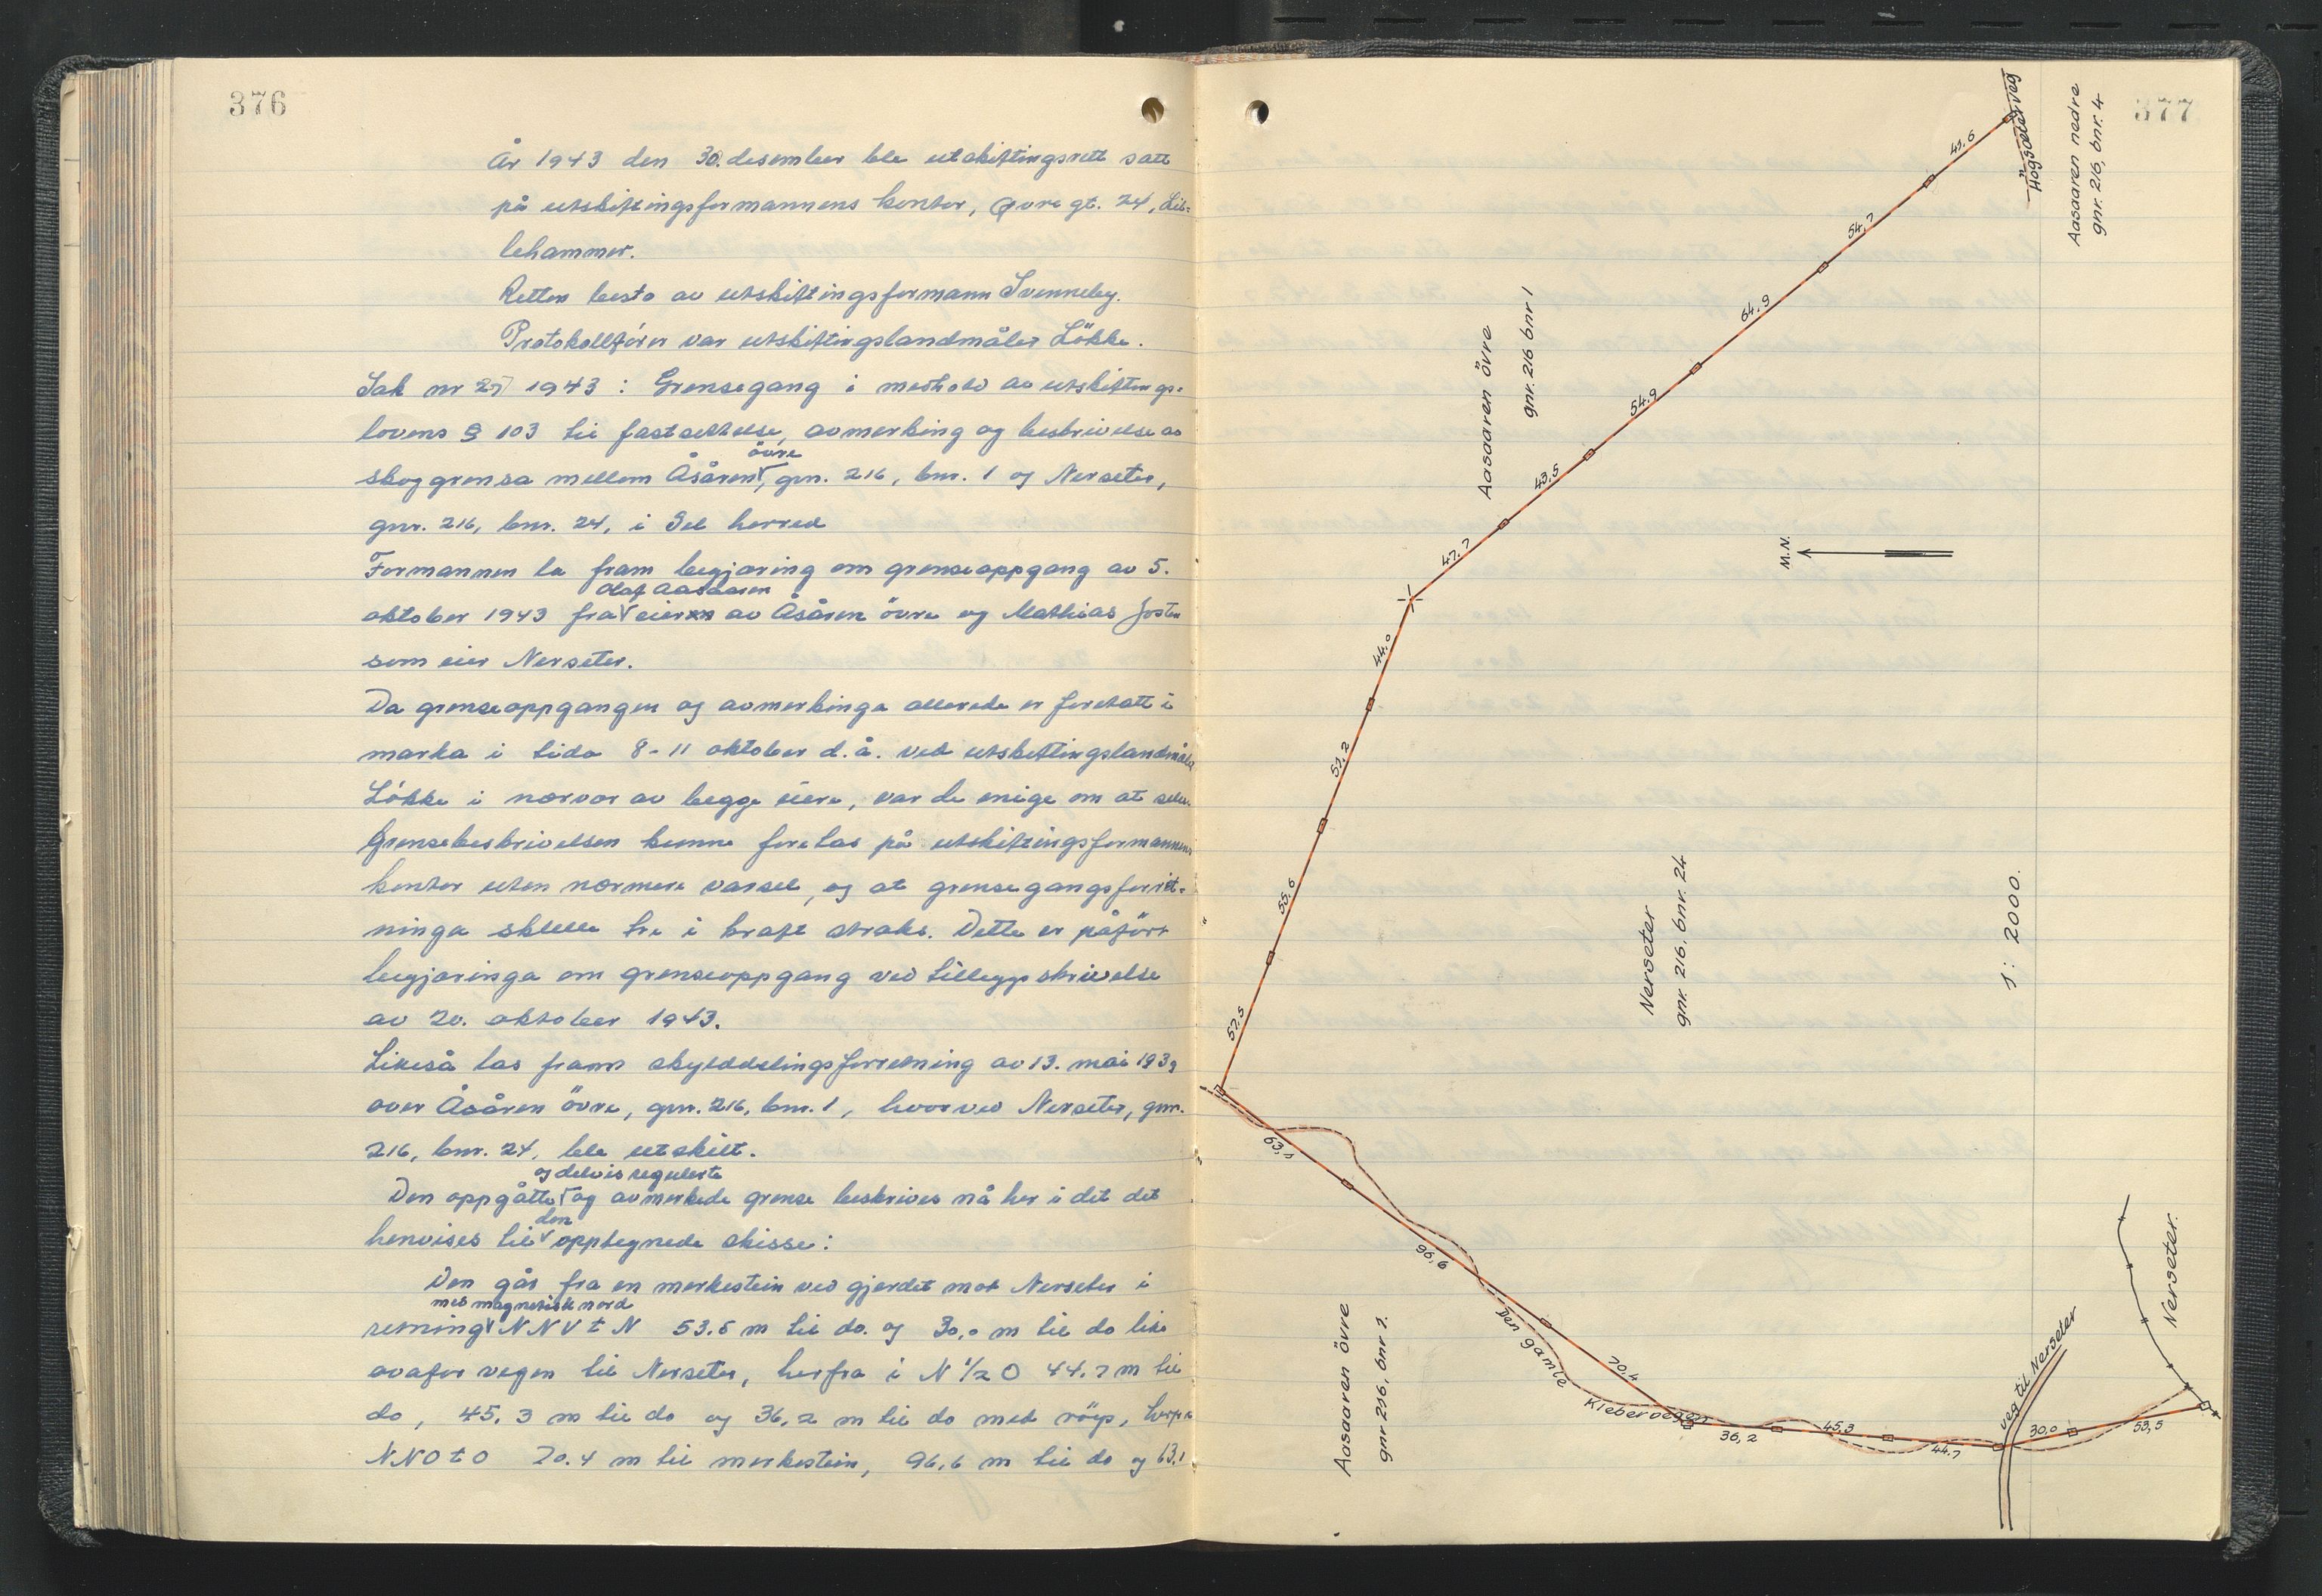 376
År 1943 den 30. desember ble utskiftingsrett satt
på utskiftingsformannens kontor, Øvre gt. 24, Lil-
lehammer.
Retten besto av utskiftingsformann Svenneby.
Protokollfører var utskiftingslandmåler Lökke.
Sak nr 27 1943 : Grensegang i medhold av utskiftings-
lovens § 103 til fastsettelse, avmerking og beskrivelse av
övre
skoggrensa mellom Åsåren, gnr. 216, bnr. 1 og Nerseter,
gnr. 216, bnr. 24, i Sel herred
Formannen la fram begjæring om grenseoppgang av 5.
Olaf Aasaaren
oktober 1943 fra eieren av Åsåren övre og Mathias Josten
som eier Nerseter.
Da grenseoppgangen og avmerkinga allerede er foretatt i
marka i tida 8-11 oktober d.å. ved utskiftingslandmåler
Lökke i nærvær av begge eiere, var de enige om at selve
Grensebeskrivelsen kunne foretas på utskiftingsformannens
kontor uten nærmere varsel, og at grensegangsforret-
ninga skulle tre i kraft straks. Dette er påfört
begjæringa om grenseoppgang ved tilleggsskrivelse
av 20. oktober 1943.
Likeså las fram skylddelingsforretning av 13. mai 1939
over Åsåren övre, gnr. 216, bnr. 1, hvorved Nerseter, gnr.
216, bnr. 24, ble utskilt.
og delvis regulerte
Den oppgåtte og avmerkede grense beskrives nå her i det det
den
henvises til opptegnede skisse:
Den går fra en merkestein ved gjerdet mot Nerseter i
med magnetisk nord
retning NNV t N 53.5 m til do. og 30,0 m til do like
ovafor vegen til Nerseter, herfra i N 1/2 O 44.7 m til
do, 45.3 m til do og 36,2 m til do med röys, herfra
NNO t O 70.4 m til merkestein, 96,6 m til do og 63,1
377
Högsæterveg
Aasaaren nedre
gnr. 216, bnr. 4
43,6
54,7
64,9
54,9
43,5
47,7
Aasaaren övre
gnr. 216 bnr 1
M.N.
44,0
57,2
55,6
57,5
Nerseter
gnr. 216, bnr. 24
1: 2000.
63,1
96,6
70,4
den gamle
Klebervegen
36,2
45,3
44,7
30,0
53,5
veg til Nerseter
Nerseter.
Aasaaren övre
gnr 216, bnr 1.